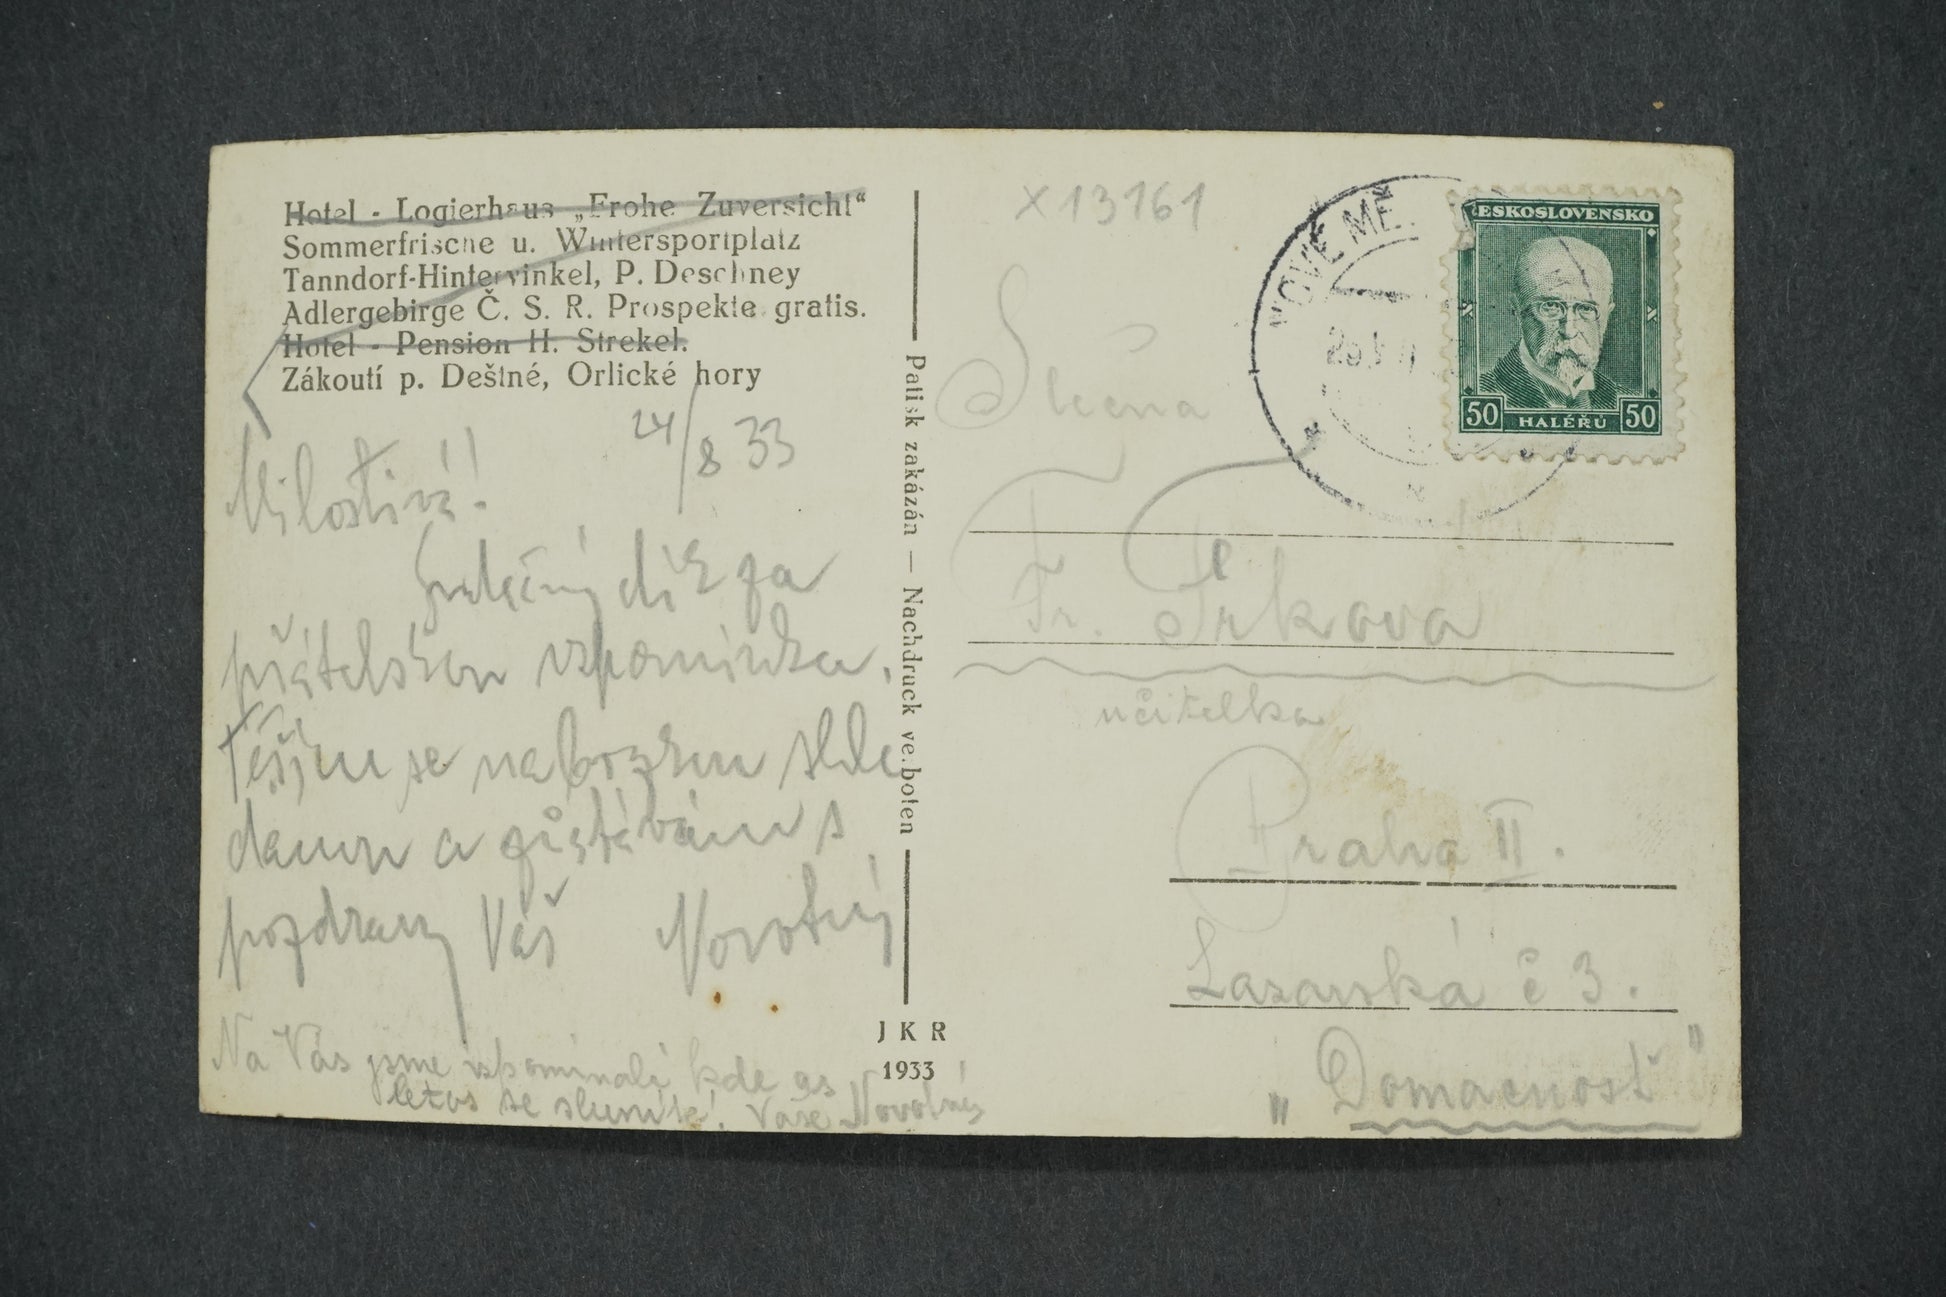 Hotel - Logierhaus „Frohe Zuversicht“
Sommerfrische u. Wintersportplatz
Tanndorf-Hinterwinkel, P. Deschney
Adlergebirge Č. S. R. Prospekte gratis.
Hotel - Pension H. Strekel.
Zákoutí p. Deštné, Orlické hory
24/8 33
Milostivá!
Srdečný dík za
přátelskou vzpomínku.
Těším se na brzkou
a zůstávám s
pozdravy Váš Novotný
Na Vás jsme vzpomínali kde as
letos se sluníte. Vaše Novotná
Patisk zakázán — Nachdruck verboten
J K R
1933
X 13161
NOVÉ MĚ
ČESKOSLOVENSKO
50 HALÉŘŮ 50
Slečna
Fr. Prkova
učitelka
Praha II.
Lazarská č 3.
„Domácnost"